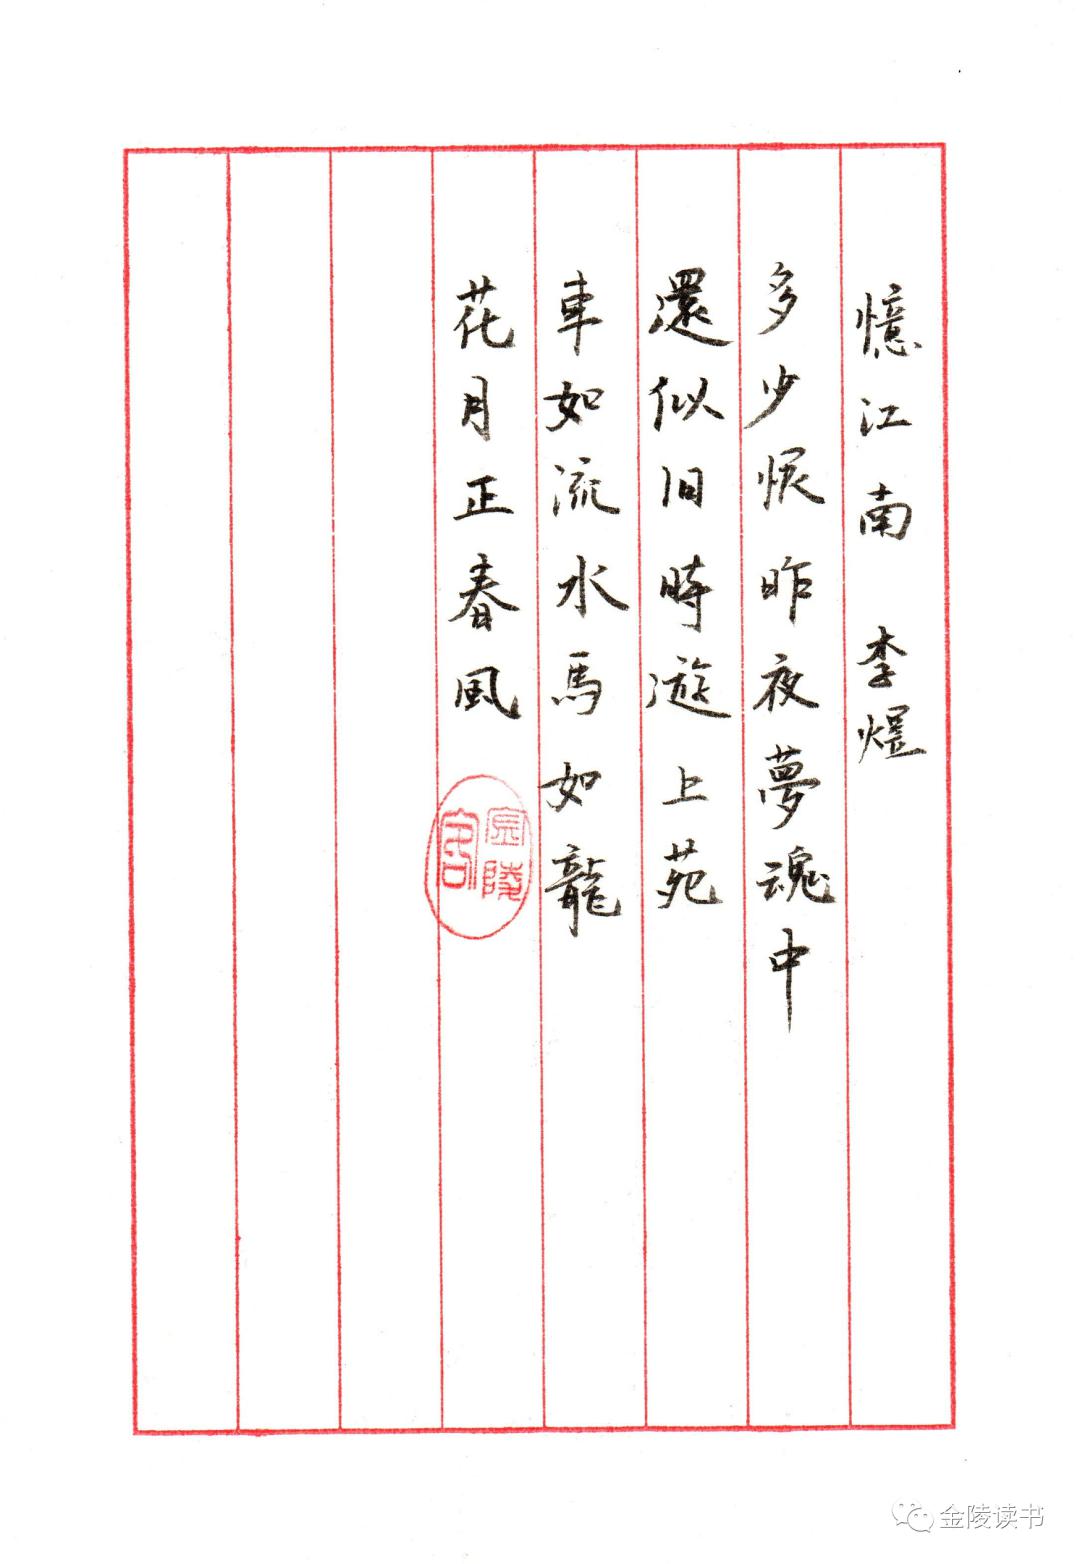 憶江南 李煜
多少恨昨夜夢魂中
還似旧時遊上苑
車如流水馬如龍
花月正春風
金陵客
金陵读书